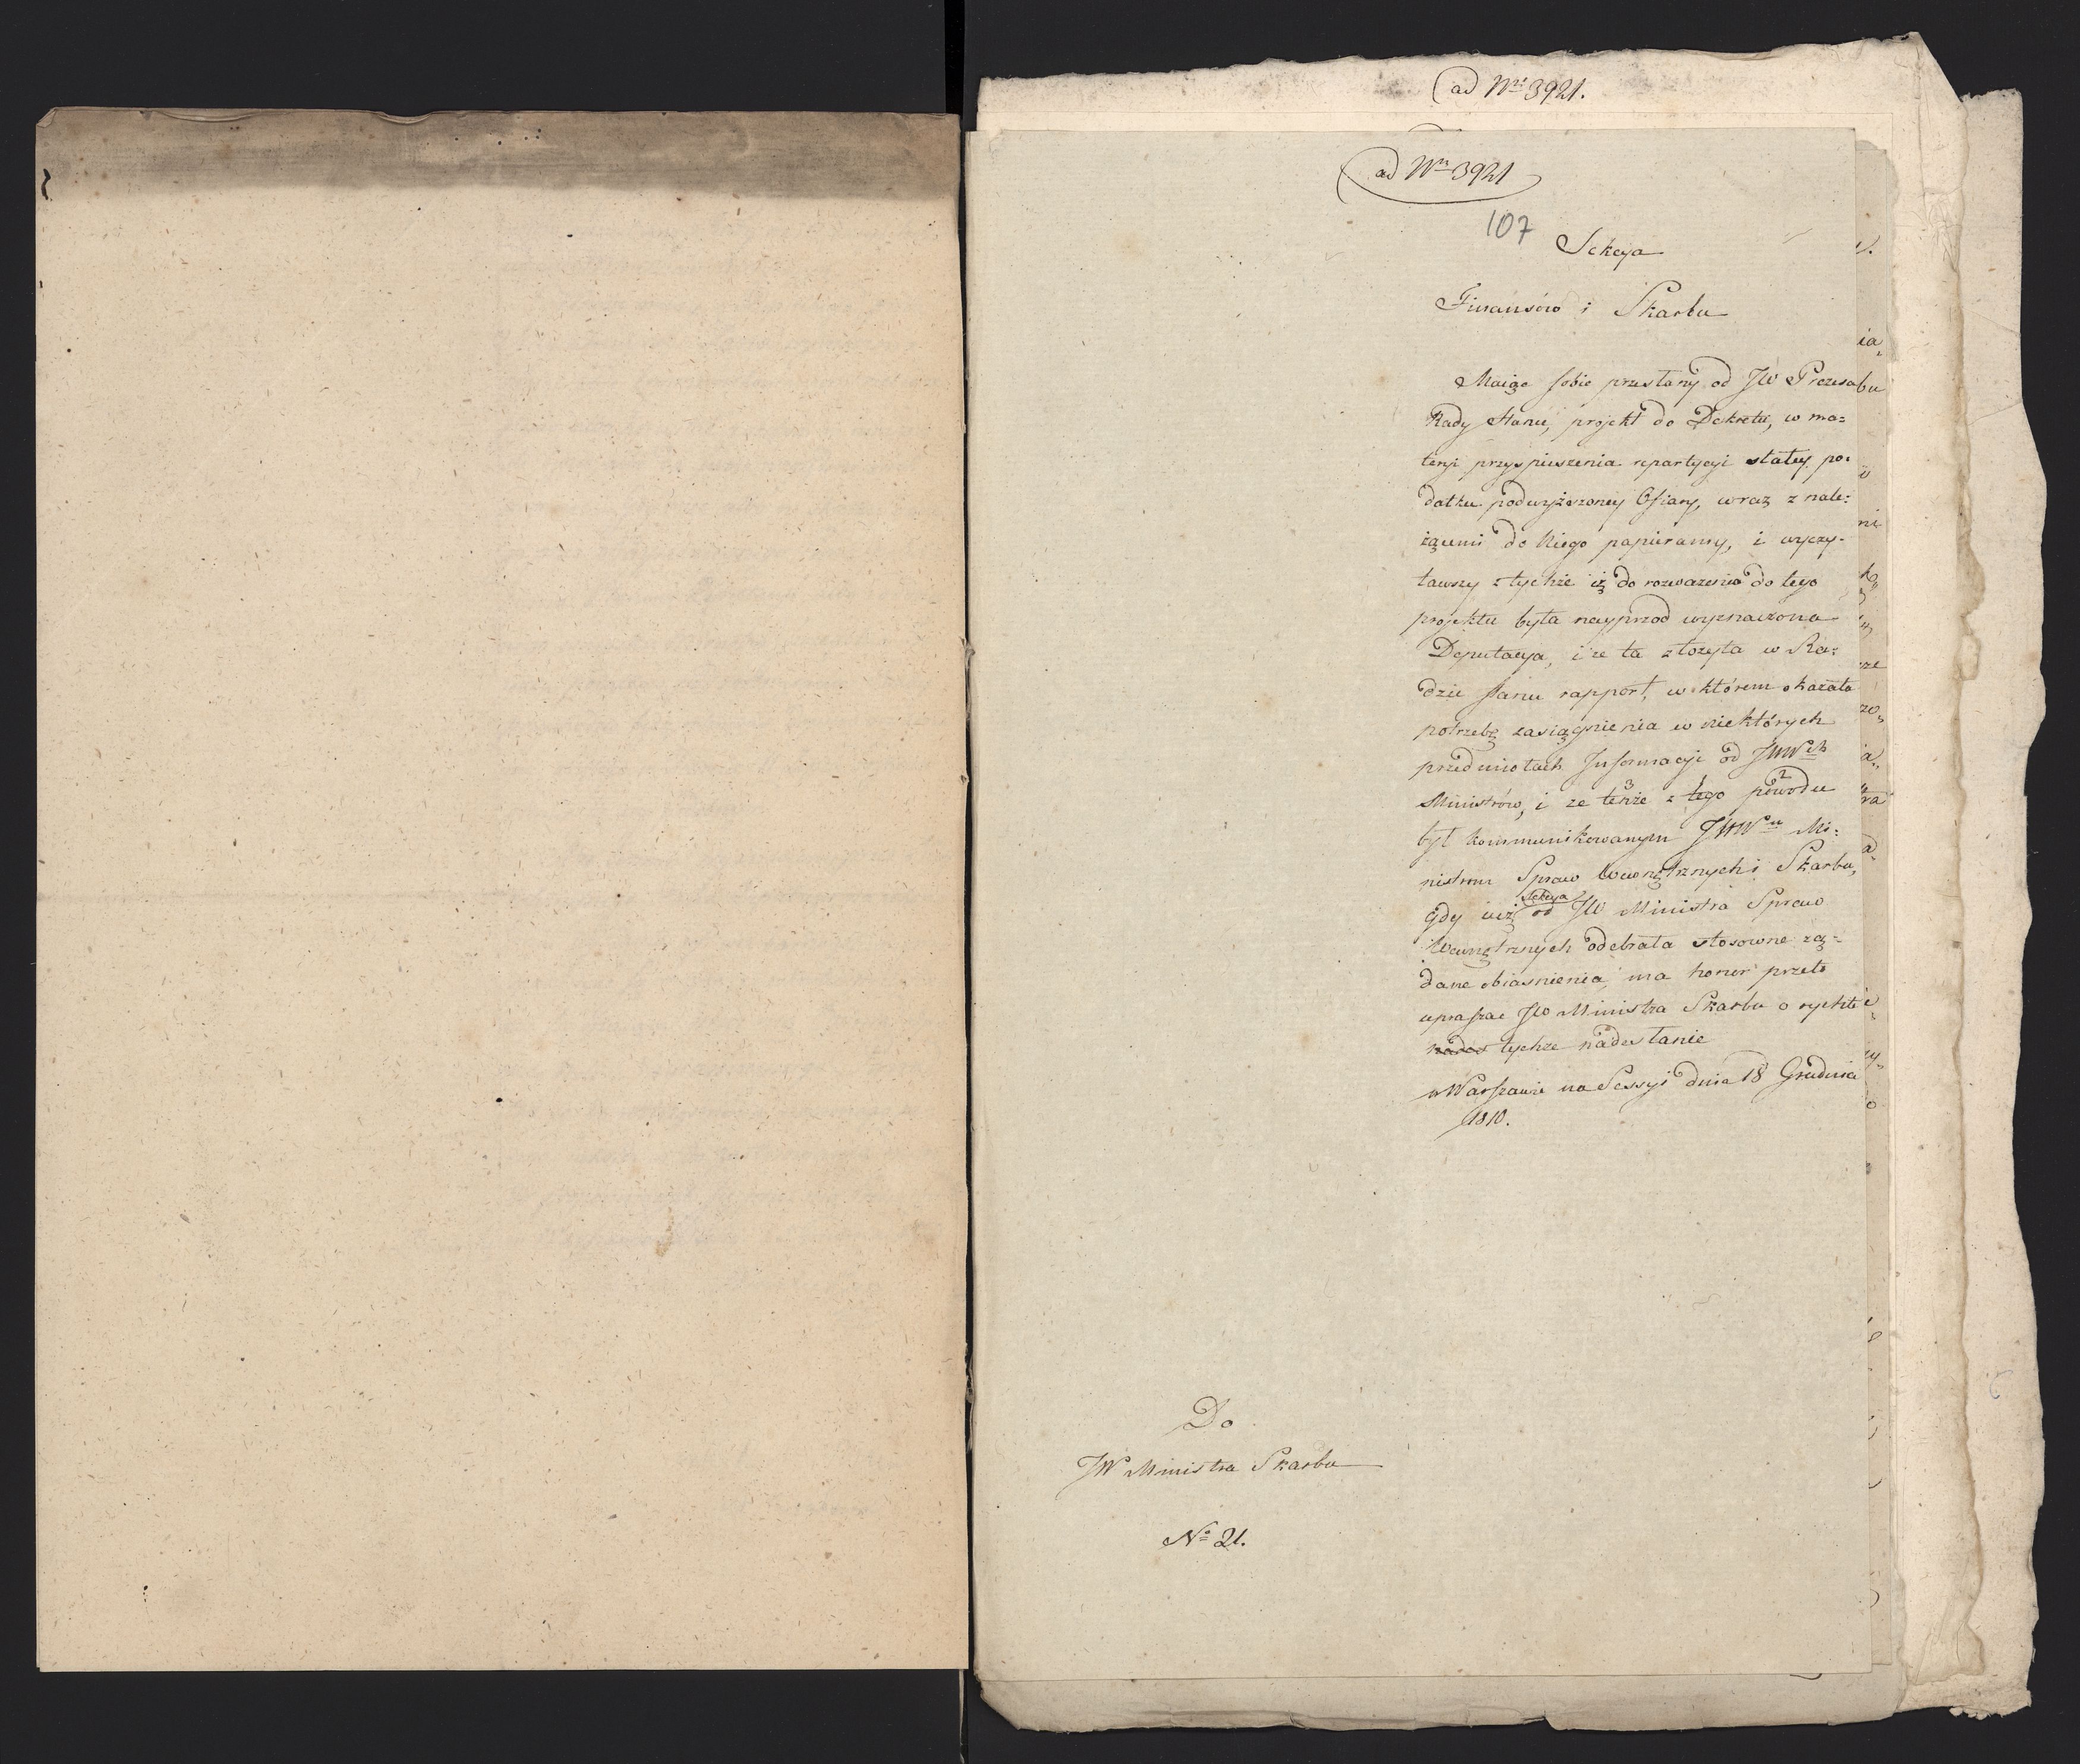 ad Nri 3921.
ad Nri 3921
107
Sekcya
Finansów i Skarbu
Maiąc sobie przesłany od JW Prezesa
Rady Stanu, projekt do Dekretu, w ma=
teryi przyspieszenia repartycyi stałey po=
datku podwyższoney Ofiary, wraz z nale=
żącemi do Niego papierami, i wyczy=
tawszy z tychże iż do rozważenia do tego
projektu była nayprzod wyznaczona
Deputacya, i że ta złożyła w Ra=
dzie stanu rapport, w którem okazała
potrzebę zasiągnienia w niektórych
przedmiotach Informacyi od JWWch
Ministrów, i ze tenże 3 z tego 1 powodu 2
był kommunikowanym JWWm Mi=
nistrom Spraw Wewnętrznych i Skarbu,
gdy iuż Sekcya od JW Ministra Spraw
Wewnętrznych odebrała stosowne żą=
dane obiasnienia, ma honor przeto
upraszac JW Ministra Skarbu o rychłe
nades tychze nadesłanie
w Warszawie na Sessyi dnia 18 Grudnia
1810.
Do
JW Ministra Skarbu
No 21.